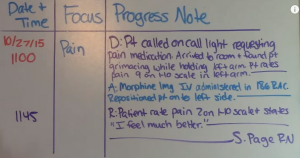 Date + Time Focus Progress Note
10/27/15 Pain D: Pt called on call light requesting
1100 pain medication. Arrived to room + found pt
grimacing while holding left arm. Pt rates
pain 9 on 1-10 scale in left arm.
A: Morphine 1mg IV administered in
Repositioned pt on to left side.
1145 R: Patient rate pain 2 on 1-10 scale + states
"I feel much better."
S. Page RN